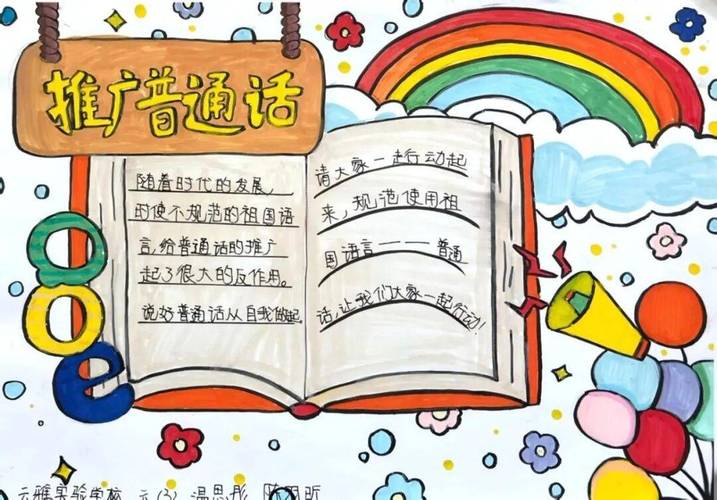 推广普通话
ɑ
o
e
随着时代的发展,
的使不规范的祖国语
言,给普通话的推广
起了很大的反作用。
说好普通话从自我做起.
请大家一起行动起
来,规范使用祖
国语言———普通
话,让我们大家一起行动!
实验学校 (3) 温思彤